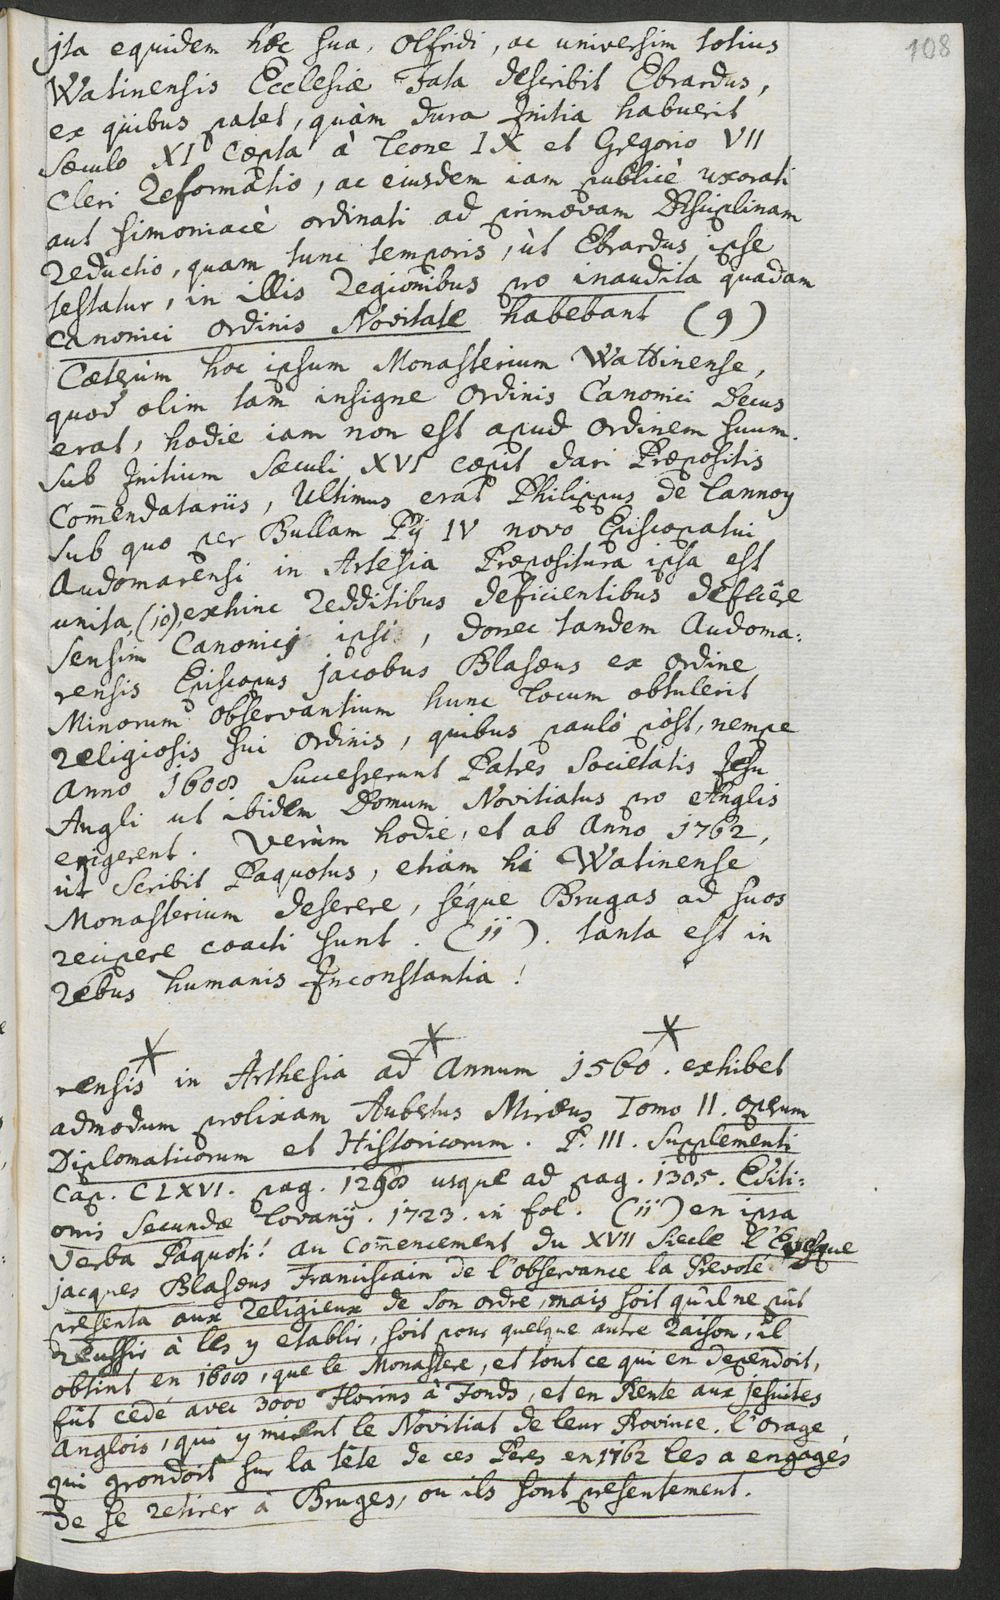 108
jta equidem hæc sua, Olfridi, ac universim totius
Watinensis Ecclesiæ Fata describit Ebrardus,
ex quibus patet, quàm dura Initia habuerit
Sæculo XI cæpta à Leone IX et Gregorio VII
Cleri Reformatio, ac eiusdem iam publicè uxorati
aut simoniacè ordinati ad primævam Disciplinam
Reductio, quam tunc temporis, ùt Ebrardus ipse
testatur, in illis Regionibus pro inaudita quadam
Canonici Ordinis Novitate habebant (9)
Cæterùm hoc ipsum Monasterium Wattinense,
quod olim tam insigne Ordinis Canonici Decus
erat, hodie iam non est apud Ordinem suum.
Sub Initium Sæculi XVI cæpit dari Præpositis
Com̄endatariis, Ultimus erat Philippus de Lannoy
sub quo per Bullam Pij IV novo Episcopatui
Audomarensi in Artesia Præpositura ipsa est
unita, (10), exhinc Redditibus deficientibus defecêre
sensim Canonici ipsi, donec tandem Audoma:
rensis Episcopus Jacobus Blasæus ex Ordine
Minorum observantium hunc locum obtulerit
religiosis sui Ordinis, quibus paulò pòst, nempe
Anno 1600 successerunt Patres Societatis Jesu
Angli ut ibidem Domum Novitiatus pro Anglis
erigerent. Verùm hodie, et ab Anno 1762,
ùt scribit Paquotus, etiam hi Watinense
Monasterium deserere, séque Brugas ad suos
recipere coacti sunt. (11). tanta est in
Rebus humanis Inconstantia!
rensis in Arthesia ad Annum 1560. exhibet
admodum prolixam Aubertus Miræus Tomo II. operum
Diplomaticorum et Historicorum. P. III. Supplementi
Cap. CLXVI. pag. 1260 usque ad pag. 1305. Editi:
onis Secundæ Lovanij. 1723. in fol. (11) en ipsa
Verba Paquoti! Au Com̄encement du XVII Siecle l'Evesque
Jacques Blasæus Franciscain de l'observance la Prevoté
presenta aux Religieux de son ordre, mais soit qu'il ne pùt
reussir à les y etablir, soit pour quelque autre Raison, il
obtint en 1600, que le Monastere, et tout ce qui en dependoit,
fût cedé avec 3000 Florins à Fonds, et en Rente aux Jesuites
Anglois, qui y mirent le Novitiat de leur Province. l'Orage,
qui grondoit sur la tête de ces Peres en 1762 les a engagés
de se retirer à Bruges, ou ils sont presentement.